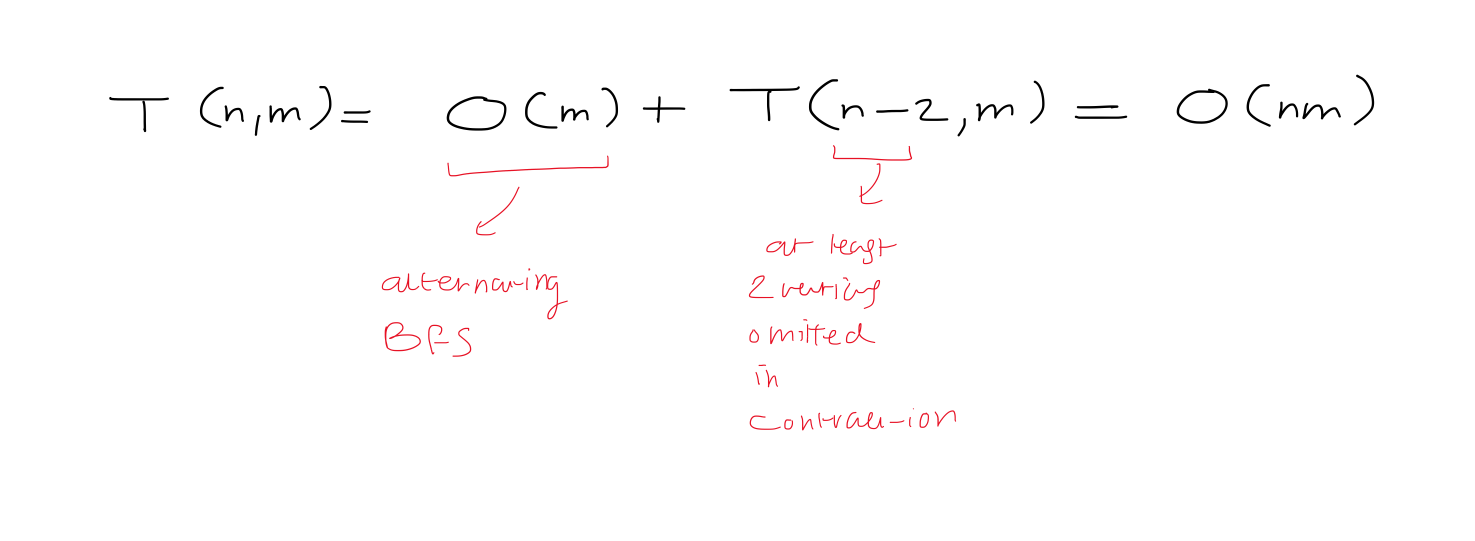 T (n,m) = O(m) + T(n-2,m) = O(nm)
alternating
BFS
at least
2 vertices
omitted
in
contraction